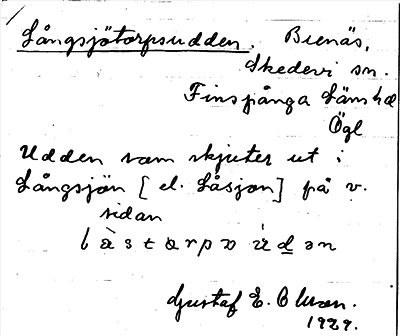 Långsjötorpsudden, Buenäs,
Skedevi sn.
Finspånga Läns hd
Ögl
Udden som skjuter ut i
Långsjön [el. Låsjon] på v.
sidan
låstɑrpsudən
Gustaf E. Olsson.
1929.